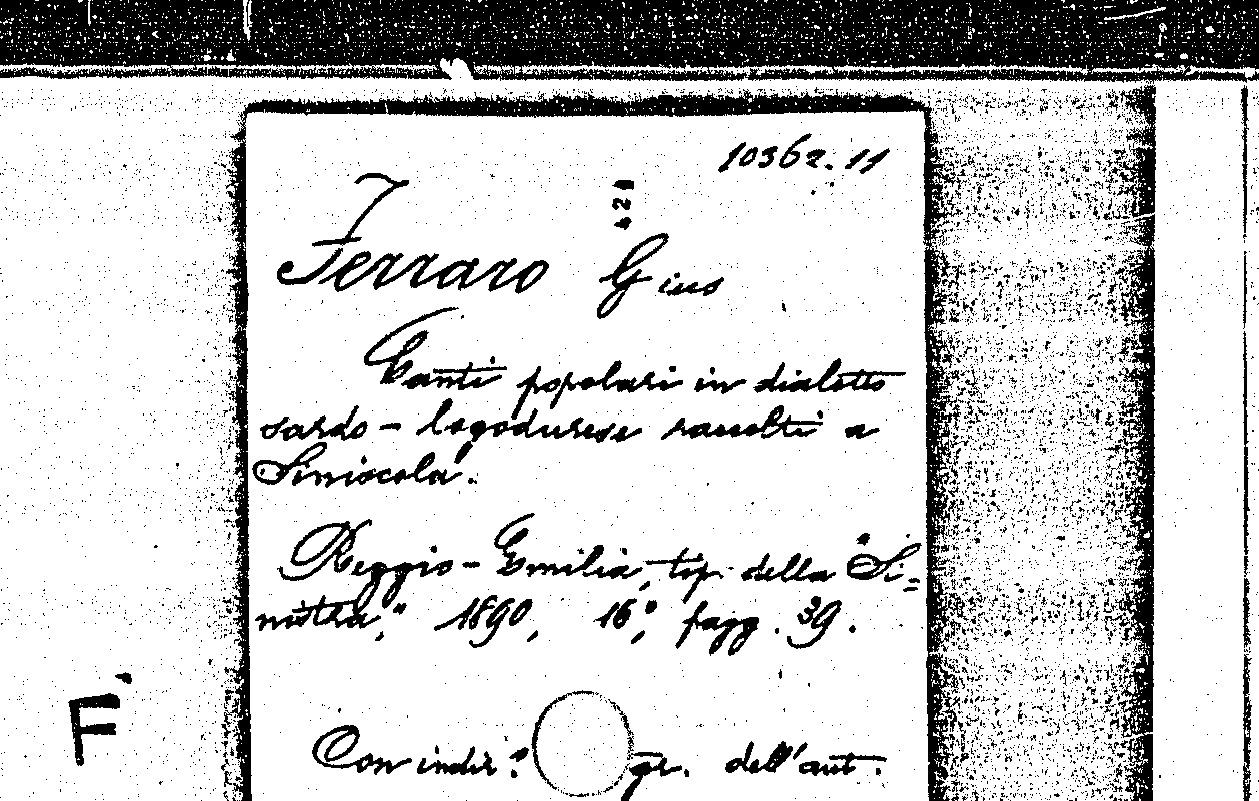 10362.11
Ferraro Gius
Canti popolari in dialetto
sardo - logodurese raccolti a
Siniscola.
Reggio - Emilia, tip. della "Si=
nistra", 1890, 16°, pagg. 39.
Con indir.° gr. dell'aut.
F